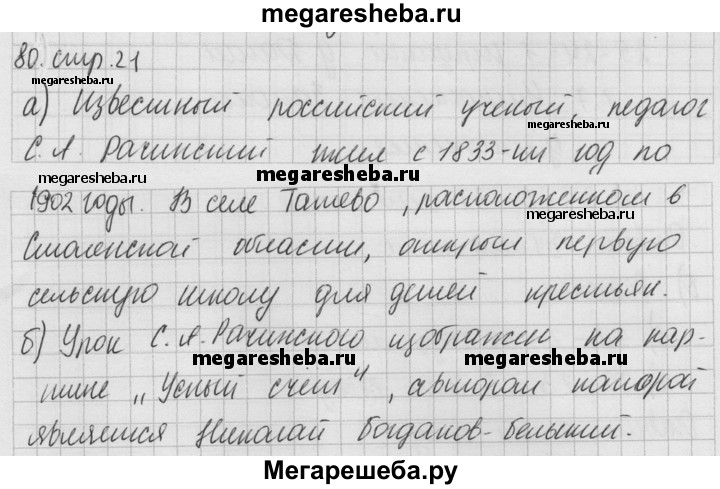 megaresheba.ru
80. стр. 21
megaresheba.ru
megaresheba.ru
а) Известный российский ученый, педагог
megaresheba.ru
С. А. Рачинский жил с 1833-ий год по
megaresheba.ru
megaresheba.ru
1902 годы. В селе Татево, расположенном в
megaresheba.ru
Смоленской области, открыл первую
сельскую школу для детей крестьян.
б) Урок С. А. Рачинского изображен на кар-
megaresheba.ru
megaresheba.ru
тине „Устный счёт", автором которой
является Николай Богданов-Бельский.
Мегарешеба.ру